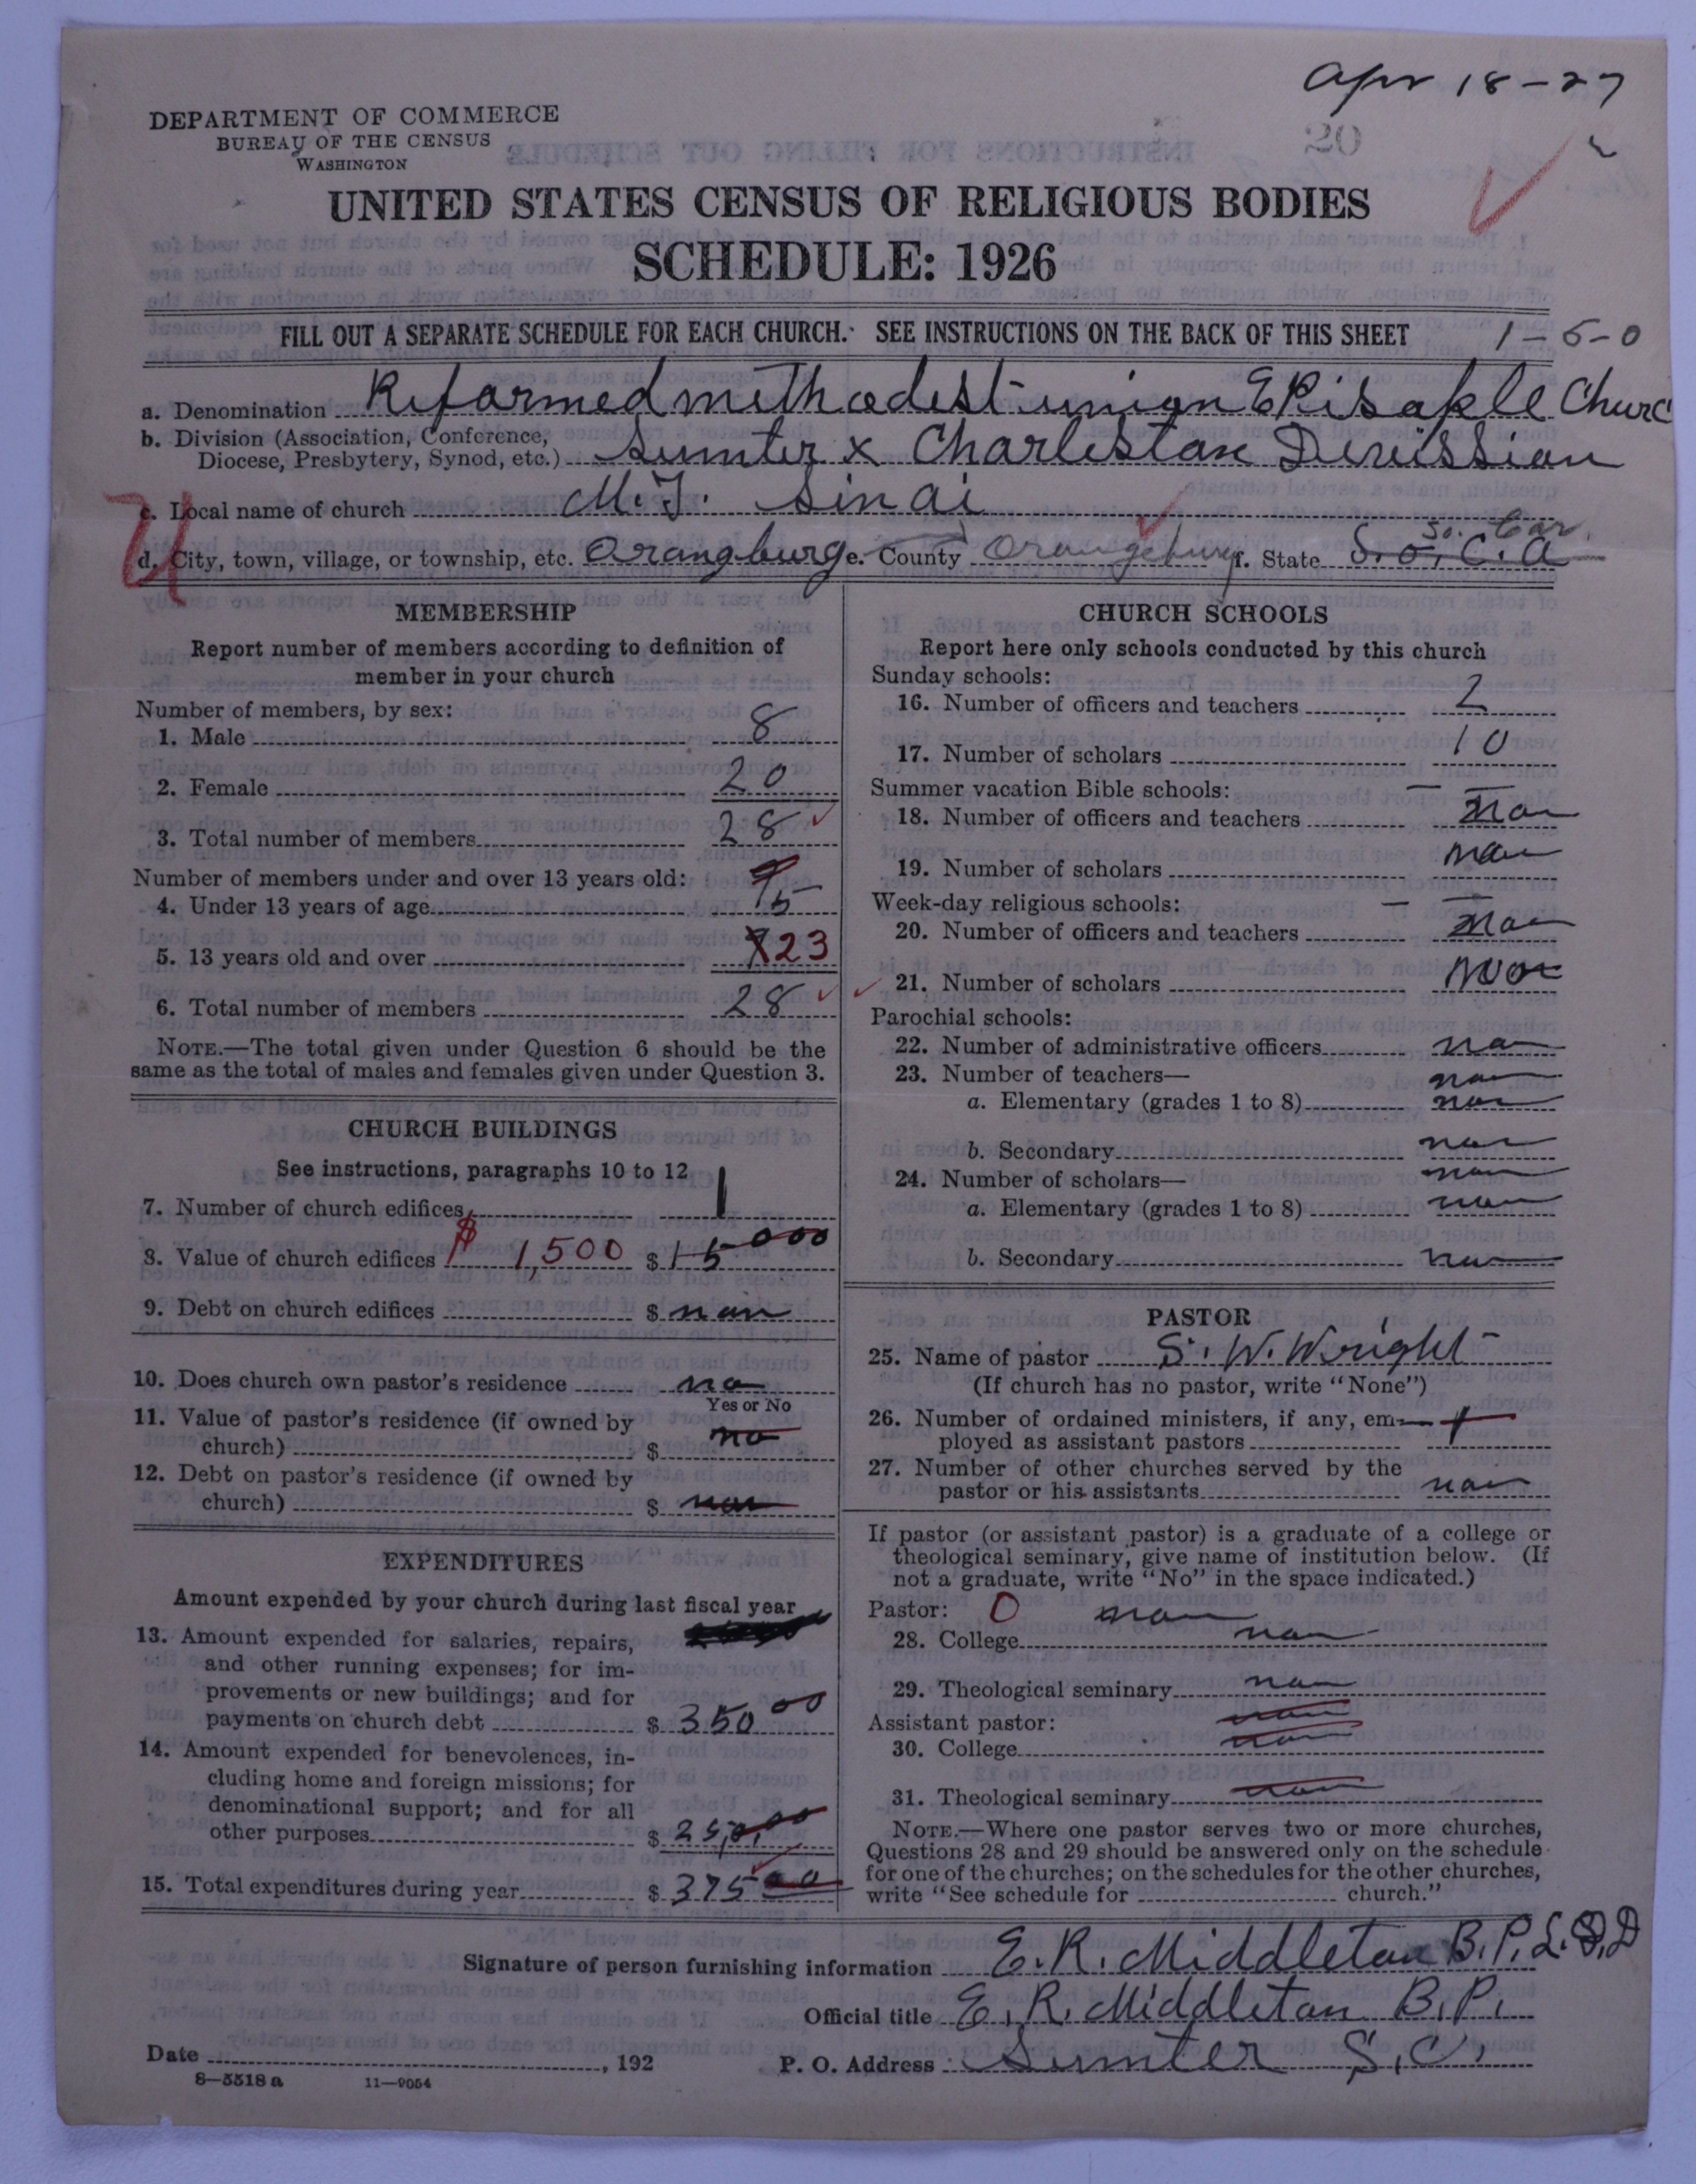 Apr 18-27
DEPARTMENT OF COMMERCE
BUREAU OF THE CENSUS
WASHINGTON
20
UNITED STATES CENSUS OF RELIGIOUS BODIES
SCHEDULE: 1926
FILL OUT A SEPARATE SCHEDULE FOR EACH CHURCH. SEE INSTRUCTIONS ON THE BACK OF THIS SHEET
1-5-0
a. Denomination Reformed methodist union EPisaple Churc
b. Division (Association, Conference,
Diocese, Presbytery, Synod, etc.) Sumter x Charlestan Devission
c. Local name of church M.T. Sinai
So. Car.
d. City, town, village, or township, etc. Orangburg e. County Orangeburg f. State S.o. C.a
U
MEMBERSHIP
Report number of members according to definition of
member in your church
Number of members, by sex:
1. Male 8
2. Female 20
3. Total number of members 28
Number of members under and over 13 years old:
4. Under 13 years of age 5
5. 13 years old and over 23
6. Total number of members 28
NOTE.—The total given under Question 6 should be the
same as the total of males and females given under Question 3.
CHURCH BUILDINGS
See instructions, paragraphs 10 to 12
7. Number of church edifices 1
8. Value of church edifices $ 1,500 $ 15000
9. Debt on church edifices $ non
10. Does church own pastor's residence no
Yes or No
11. Value of pastor's residence (if owned by
church) $ no
12. Debt on pastor's residence (if owned by
church) $ non
EXPENDITURES
Amount expended by your church during last fiscal year
13. Amount expended for salaries, repairs,
and other running expenses; for im-
provements or new buildings; and for
payments on church debt $ 350 00
14. Amount expended for benevolences, in-
cluding home and foreign missions; for
denominational support; and for all
other purposes $ 25,0,00
15. Total expenditures during year $ 375 00
CHURCH SCHOOLS
Report here only schools conducted by this church
Sunday schools:
16. Number of officers and teachers 2
17. Number of scholars 10
Summer vacation Bible schools:
18. Number of officers and teachers non
19. Number of scholars non
Week-day religious schools:
20. Number of officers and teachers non
21. Number of scholars non
Parochial schools:
22. Number of administrative officers non
23. Number of teachers— non
a. Elementary (grades 1 to 8) non
b. Secondary non
24. Number of scholars— non
a. Elementary (grades 1 to 8) non
b. Secondary non
PASTOR
25. Name of pastor S. W. Wright
(If church has no pastor, write "None")
26. Number of ordained ministers, if any, em-
ployed as assistant pastors 1
27. Number of other churches served by the
pastor or his assistants non
If pastor (or assistant pastor) is a graduate of a college or
theological seminary, give name of institution below. (If
not a graduate, write "No" in the space indicated.)
Pastor: O non
28. College non
29. Theological seminary non
Assistant pastor: non
30. College non
31. Theological seminary non
NOTE.—Where one pastor serves two or more churches,
Questions 28 and 29 should be answered only on the schedule
for one of the churches; on the schedules for the other churches,
write "See schedule for church."
Signature of person furnishing information E. R. Middletan B.P. L.D.D
Official title E. R. Middletan B.P.
Date , 192
P. O. Address Sumter S.C.
8—5518 a 11—9054